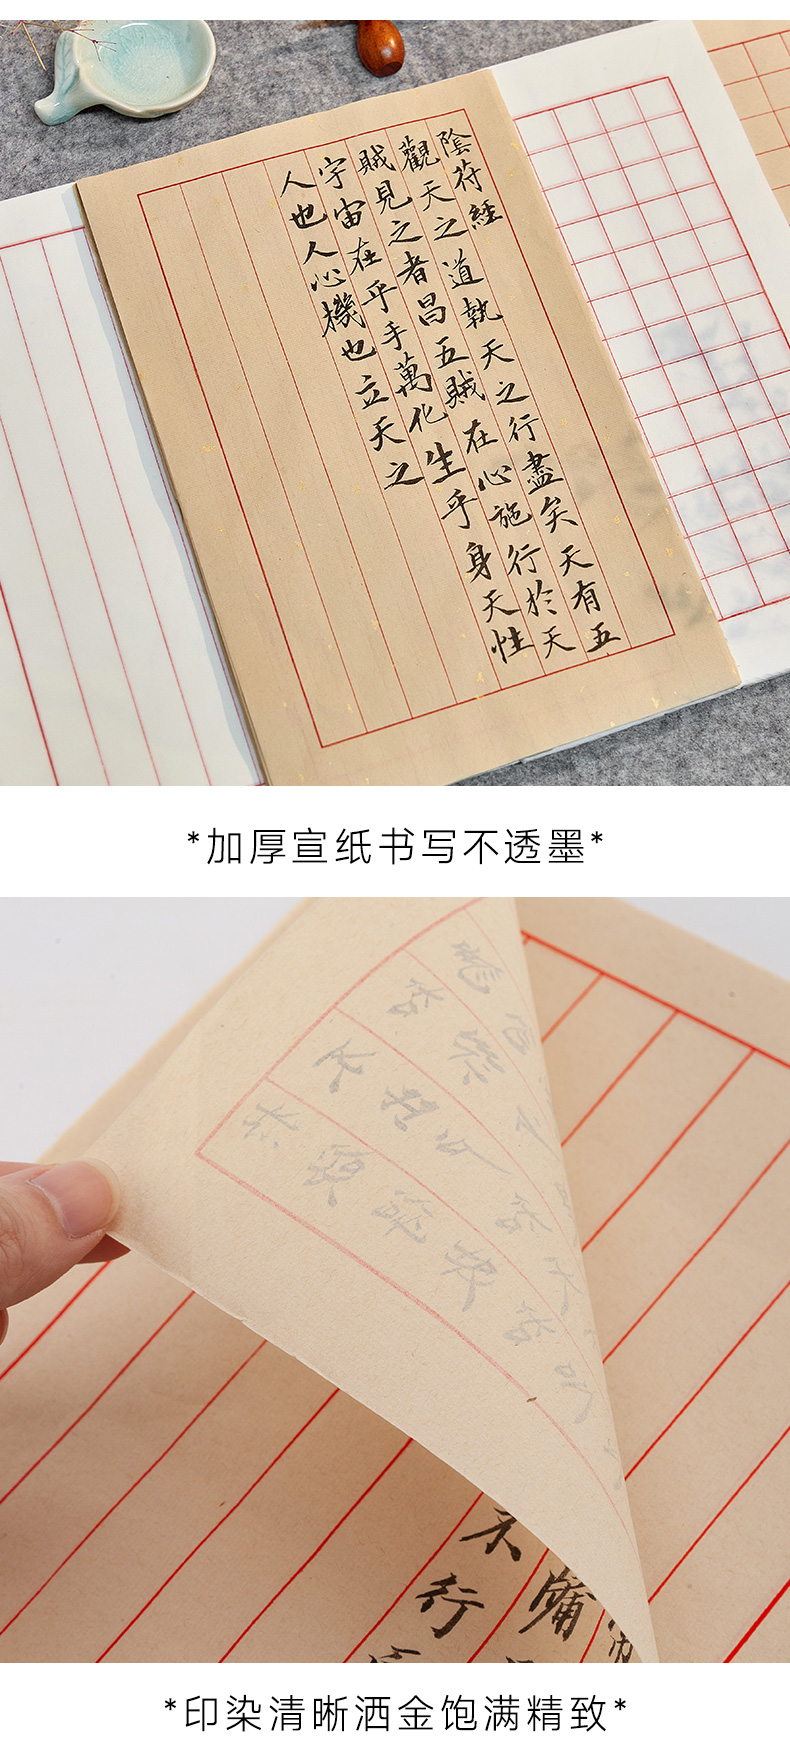 陰符經
觀天之道執天之行盡矣天有五
賊見之者昌五賊在心施行於天
宇宙在乎手萬化生乎身天性
人也人心機也立天之
*加厚宣纸书写不透墨*
行
*印染清晰洒金饱满精致*